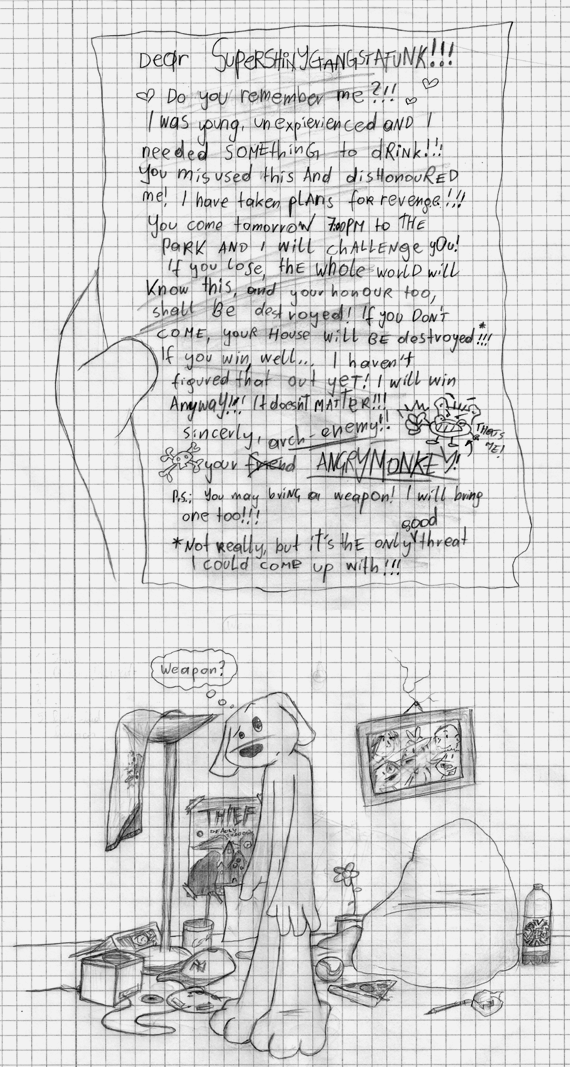 Dear SuperShinyGangstaFunk!!!
Do you remember me?!!
I was young, unexpierienced AND I
needed SOMEthinG to dRink!!!
You misused this And disHonouRED
me! I have taken plAns for revenge!!!
You come tomorroW 7:00PM to THE
PaRK AND I will ChALLENGE yOu!
If you LOSE, thE whole worLD will
Know this, and your honOUR too,
shall BE destroyed! If you DON'T
COME, youR House will BE destroyed*!!!
If you win, well... I haven't
figured that out yET! I will win
Anyway!!! It doesn't MATTER!!!
sincerly, arch-enemy!!
your friend ANGRYMONKEY!!
THATS
ME!
P.S.: You may bring a weapon! I will bring
one too!!!
good
*Not really, but it's thE only threat
I could come up with!!!
Weapon?
THIEF